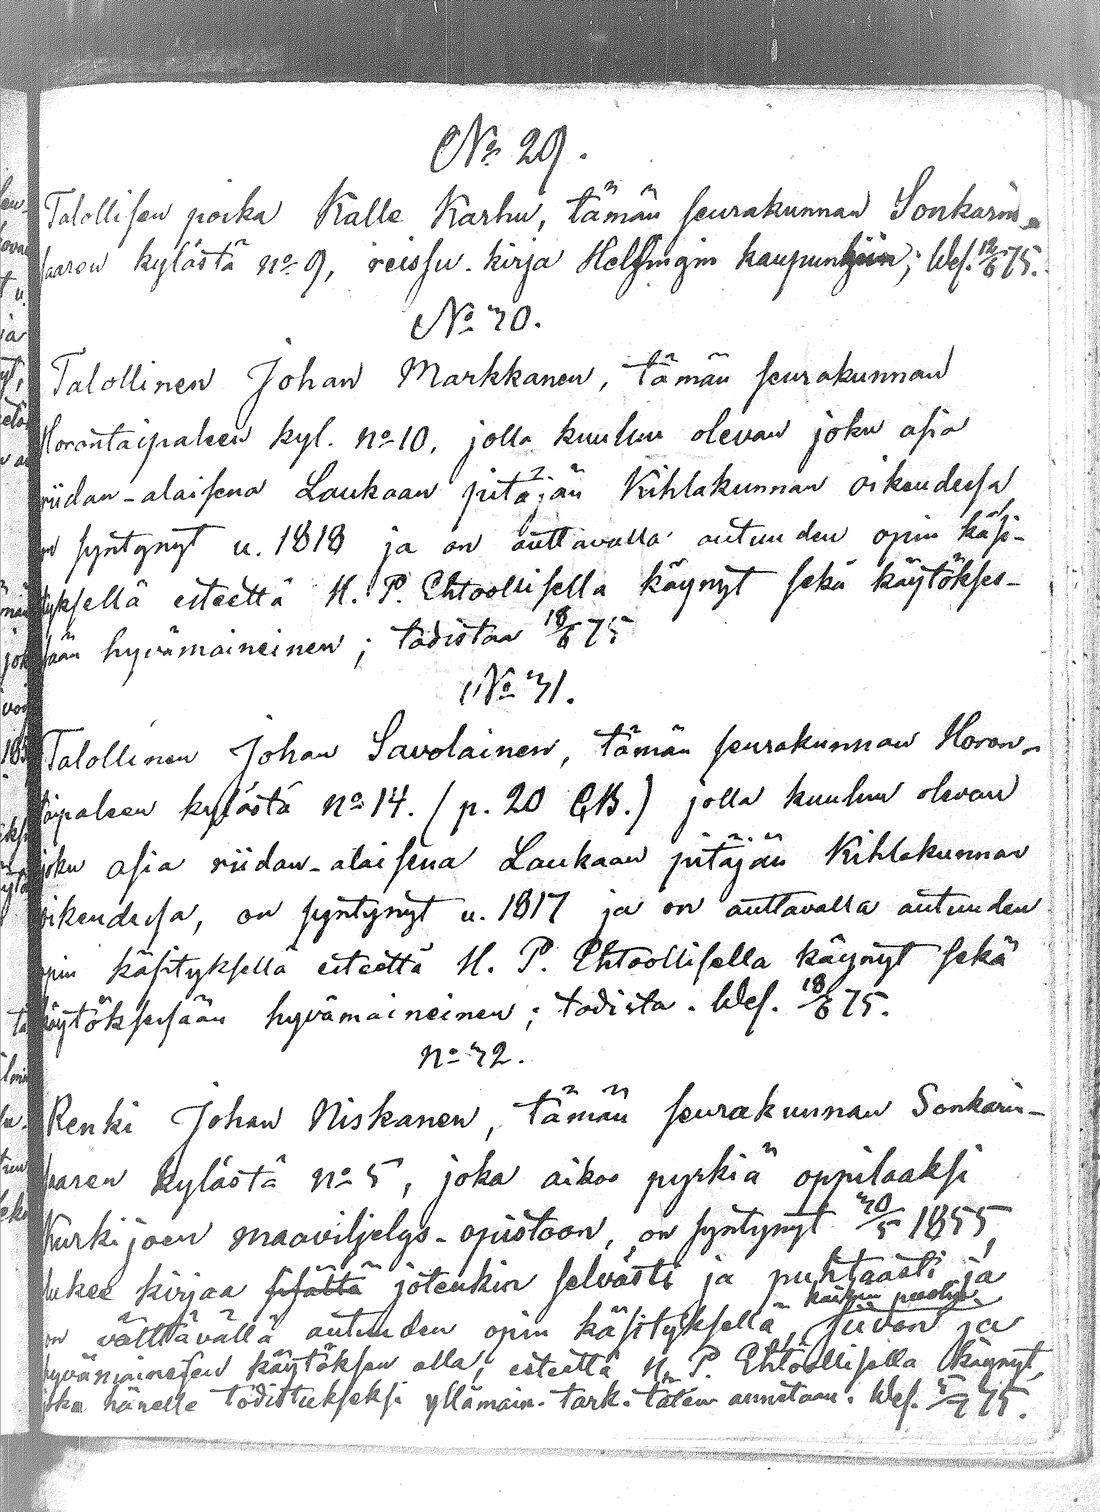 No 29.
Talollisen poika Kalle Karhu, tämän seurakunnan Sonkarin-
saaren kylästä no 9, reissu-kirja Helsingin kaupunkiin; Wes. 12/6 75.
No 30.
Talollinen Johan Markkanen, tämän seurakunnan
Horontaipaleen kyl. no 10, jolla kuuluu olevan joku asia
riidan-alaisena Laukaan pitäjän Kihlakunnan oikeudessa
on syntynyt v. 1818 ja on auttavalla autuuden opin käsi-
tyksellä esteettä H. P. Ehtoollisella käynyt sekä käytökses-
sään hyvämaineinen; todistaa 18/6 75
No 31.
Talollinen Johan Savolainen, tämän seurakunnan Horon-
taipaleen kylästä no 14. (p. 20 CB.) jolla kuuluu olevan
joku asia riidan-alaisena Laukaan pitäjän Kihlakunnan
oikeudessa, on syntynyt v. 1817 ja on auttavalla autuuden
opin käsityksellä esteettä H. P. Ehtoollisella käynyt sekä
käytöksessään hyvämaineinen; todista. Wes. 18/6 75.
no 32.
Renki Johan Niskanen, tämän seurakunnan Sonkarin-
saaren kylästä no 5, joka aikoo pyrkiä oppilaaksi
Kurkijoen maaviljelys-opistoon, on syntynyt 30/5 1855,
lukee kirjaa sisältä jotenkin selvästi ja puhtaasti ja
on välttävällä autuuden opin käsityksellä, siivon ja
kaikin puolin
hyvämaineisen käytöksen alla, esteettä H. P. Ehtoollisella käynyt,
joka hänelle todistukseksi yllämain. tark. täten annetaan. Wes. 5/7 75.